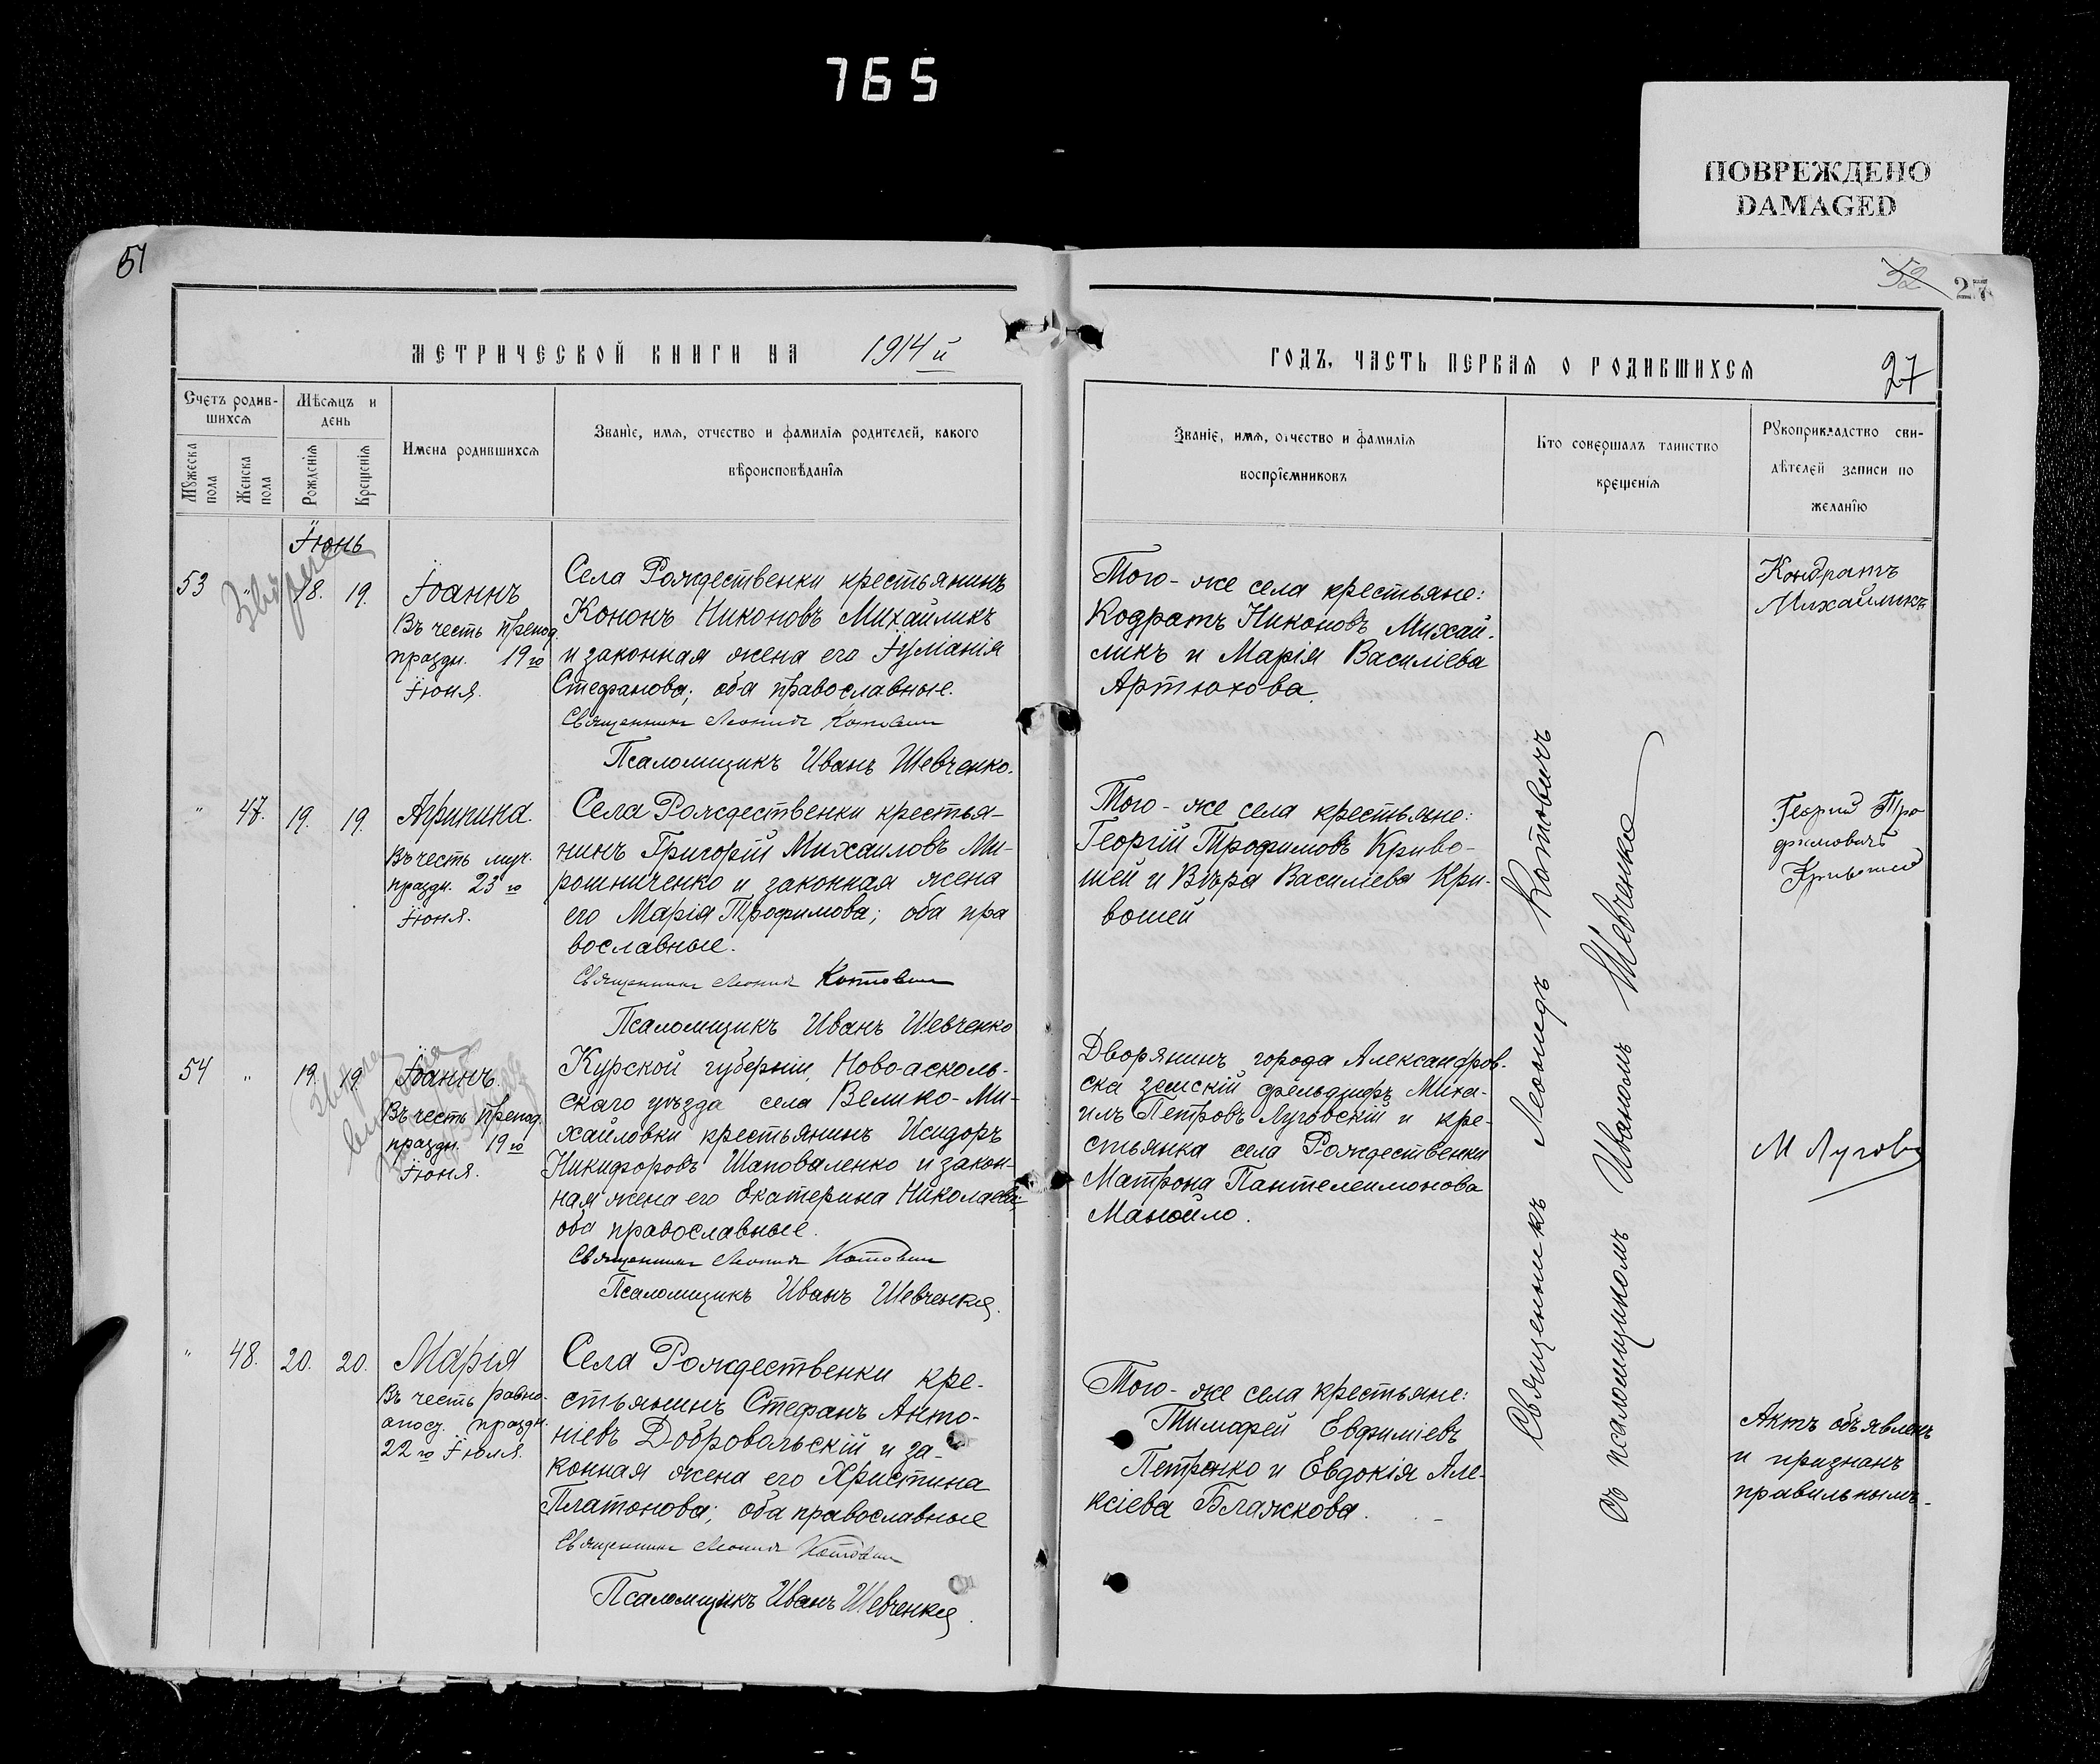 765
ПОВРЕЖДЕНО
DAMAGED
51
52
27
МЕТРИЧЕСКОЙ КНИГИ НА 1914й
ГОДЪ, ЧАСТЬ ПЕРВАЯ О РОДИВШИХСЯ
27
Счетъ родив-
шихся
Мѣсяцъ и
день
Мужеска
пола
Женска
пола
Рожденія
Крещенія
Имена родившихся
Званіе, имя, отчество и фамилія родителей, какого
вѣроисповѣданія
Званіе, имя, отчество и фамилія
воспріемниковъ
Кто совершалъ таинство
крещенія
Рукоприкладство сви-
дѣтелей записи по
желанію
Іюнь
53 " 18. 19.
Іоаннъ
Въ честь препод.
праздн. 19го
Іюня.
Села Рождественки крестьянинъ
Кононъ Никоновъ Михайликъ
и законная жена его Іуліанія
Стефанова; оба православные.
Священникъ Леонидъ Котович
Псаломщикъ Иванъ Шевченко.
Того-же села крестьяне:
Кодратъ Никоновъ Михай-
ликъ и Марія Василіева
Артюхова.
Кондратъ
Михайликъ
" 47. 19. 19.
Агрипина.
Въ честь муч.
праздн. 23го
Іюня.
Села Рождественки крестья-
нинъ Григорій Михаиловъ Ми-
рошниченко и законная жена
его Марія Трофимова; оба пра
вославные.
Священникъ Леонидъ Котович
Псаломщикъ Иванъ Шевченко
Того-же села крестьяне:
Георгій Трофимовъ Криво-
шей и Вѣра Василіева Кри-
вошей
Георгий Тро
фимовичъ
Кривошей
54 " 19. 19.
Іоаннъ.
Въ честь препод.
праздн. 19го
Іюня.
Курской губерніи, Ново-асколь-
скаго уѣзда села Велико-Ми-
хайловки крестьянинъ Исидоръ
Никифоровъ Шаповаленко и закон-
ная жена его Екатерина Николаева
оба православные.
Священникъ Леонидъ Котович
Псаломщикъ Иванъ Шевченко.
Дворянинъ города Александров-
ска земскій фельдшеръ Миха-
илъ Петровъ Луговскій и кре-
стьянка села Рождественки
Матрона Пантелеимонова
Манойло.
М Лугов
" 48. 20. 20.
Марія
Въ честь равно-
апос. праздн.
22го Іюля.
Села Рождественки кре-
стьянинъ Стефанъ Анто-
ніевъ Добровольскій и за-
конная жена его Христина
Платонова; оба православные
Священникъ Леонидъ Котович
Псаломщикъ Иванъ Шевченко.
Того-же села крестьяне:
Тимофей Евфиміевъ
Петренко и Евдокія Але-
ксіева Блажкова.
Актъ объявленъ
и признанъ
правильнымъ.
Священникъ Леонидъ Котовичъ
съ псаломщикомъ Иваномъ Шевченко